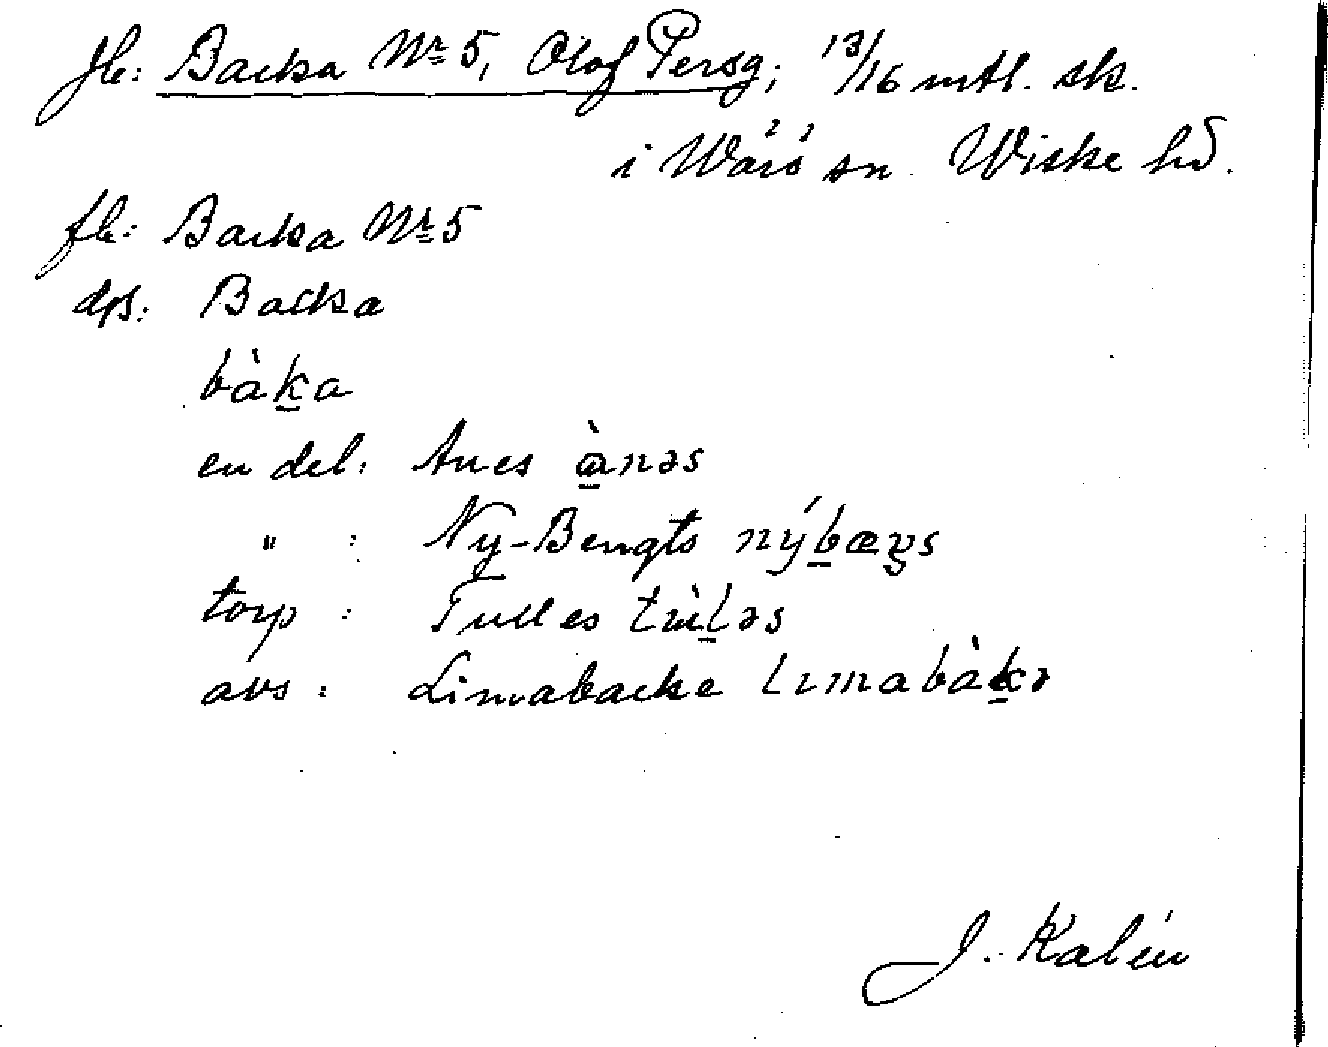 jb: Backa Nr 5, Olof Persg; 13/16 mtl. sk.
i Wärö sn. Wiske hd.
fb: Backa Nr 5
dps: Backa
bàk̠a
en del: Anes à̠nəs
" : Ny-Bengts nýb̠æŋs
torp : Tulles tùl̠əs
avs : Limabacke lımabàk̠ə
J. Kalén